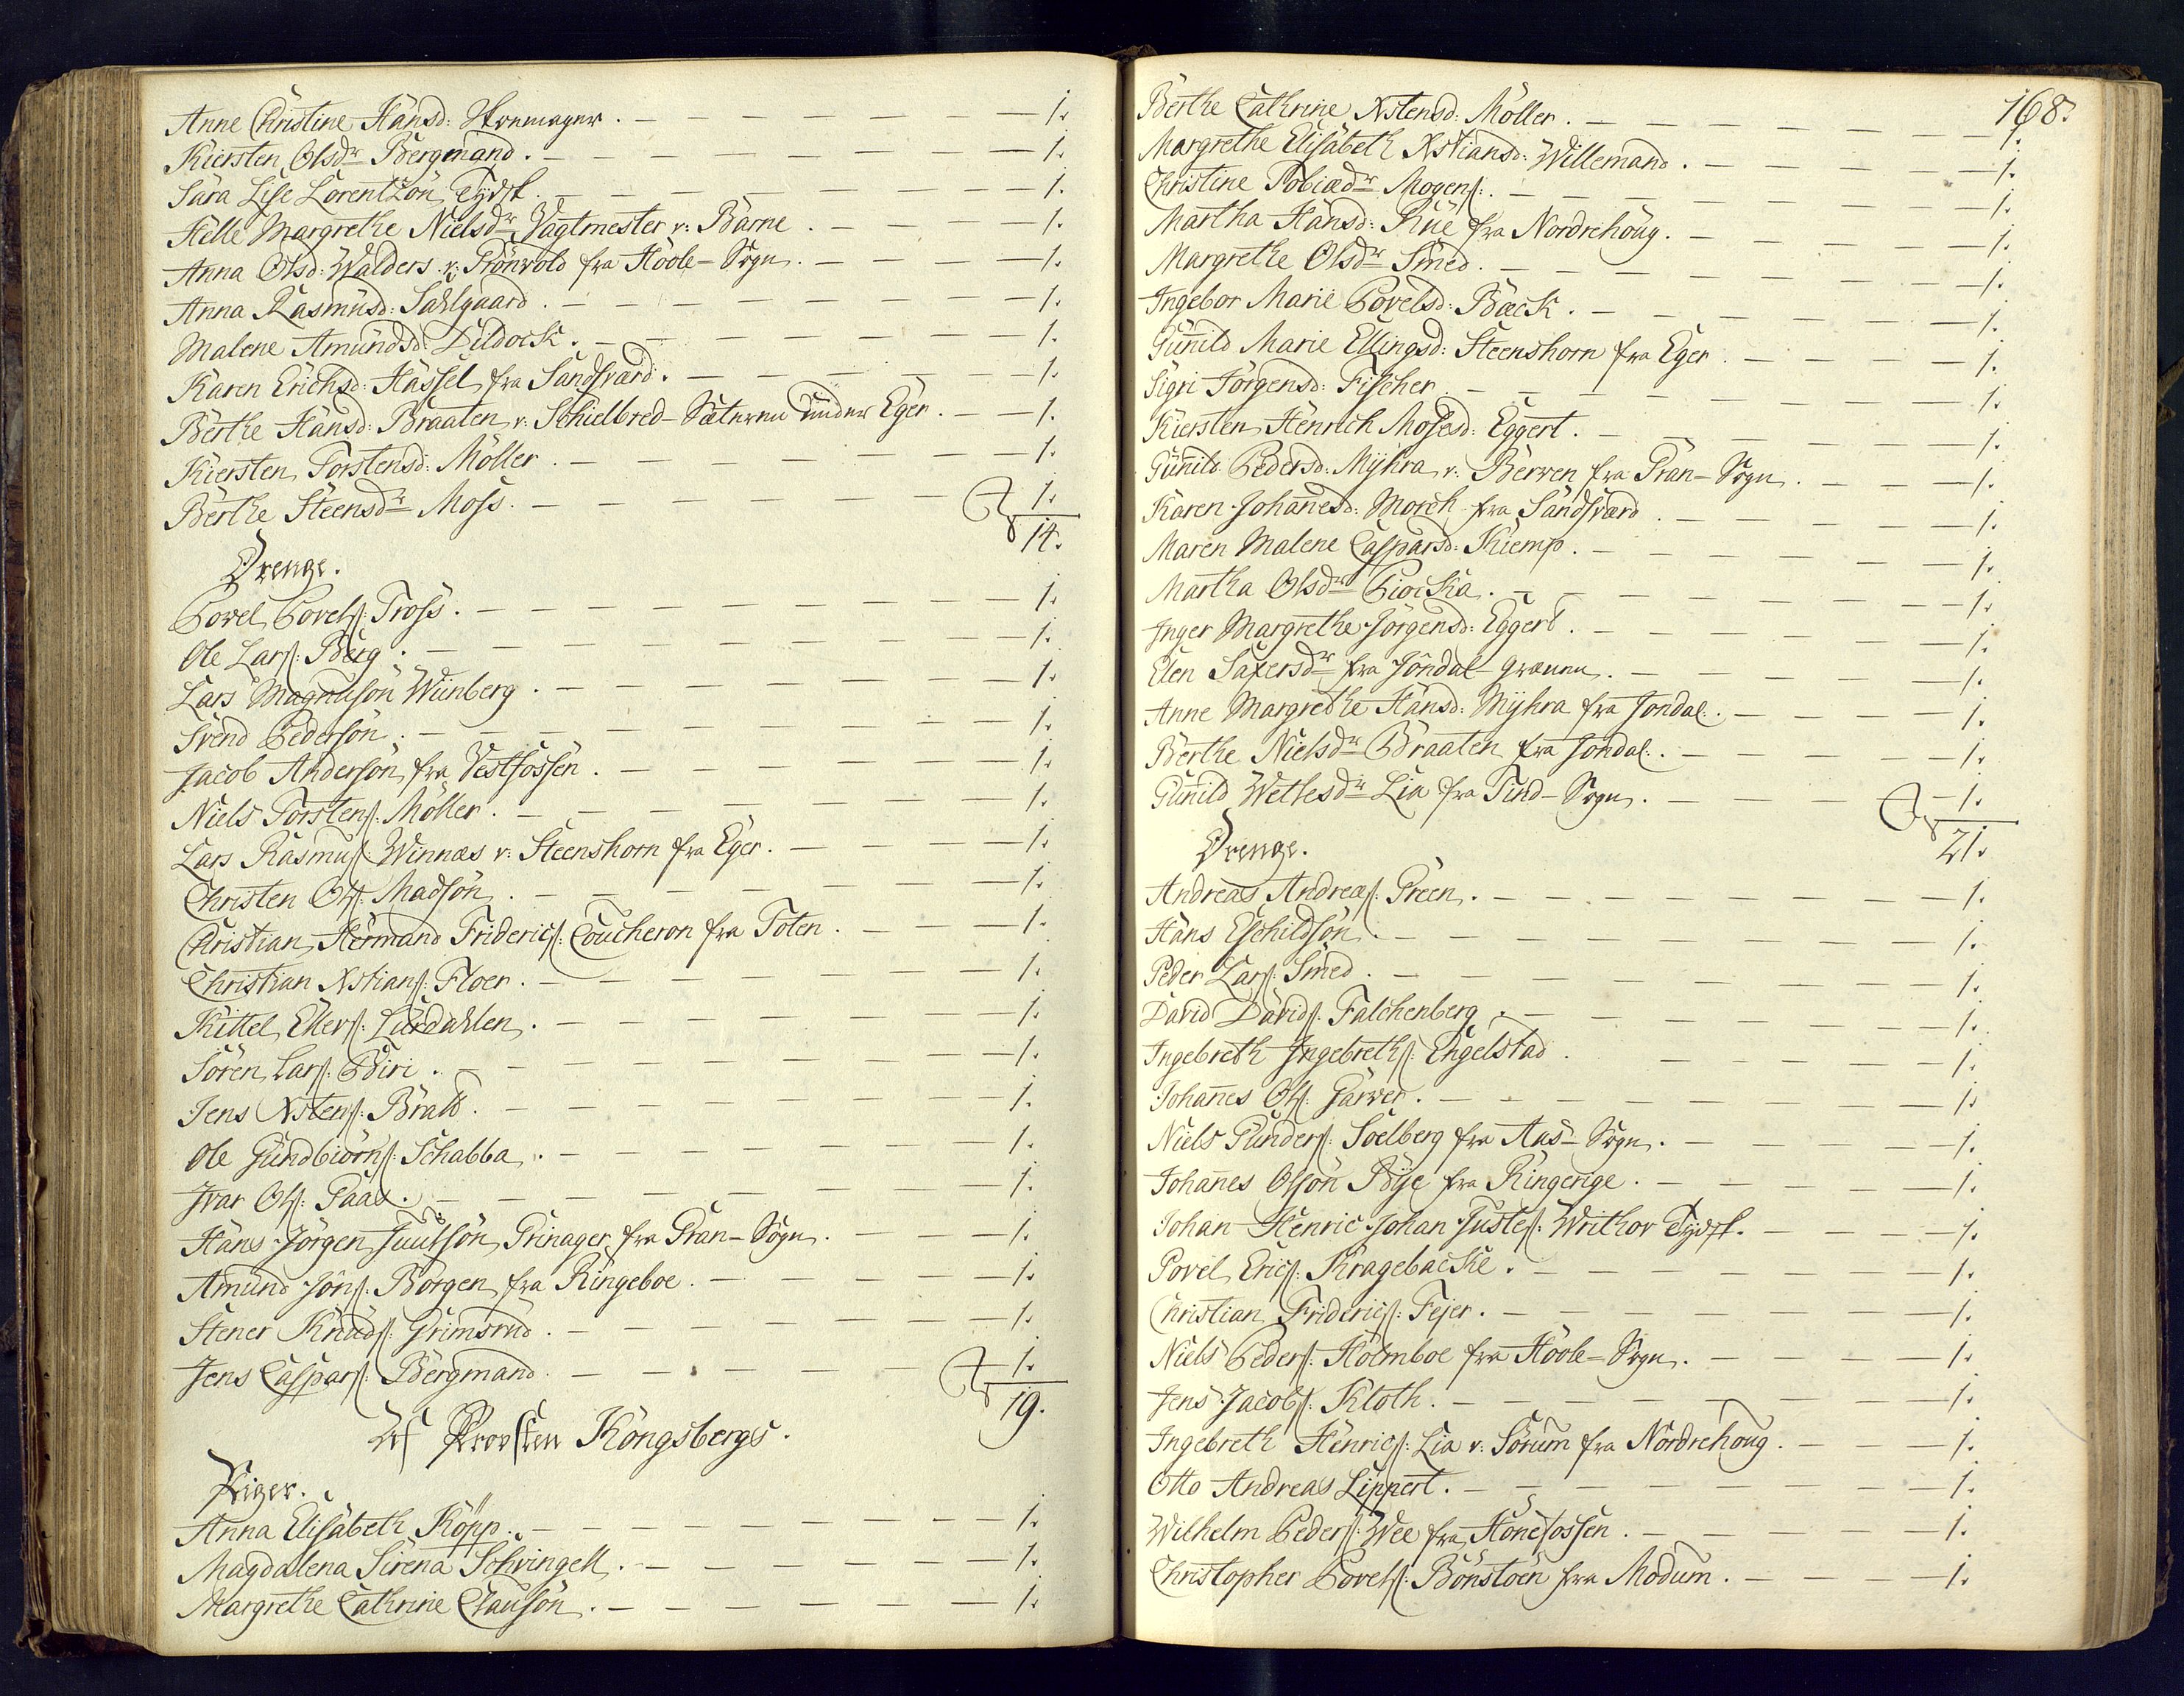 Anne Christine Hansd: Skomager. — 1.
Kiersten Olsdr Bergmand. — 1.
Sara Lise Lorentzön Tydsk. — 1.
Helle Margrethe Nielsdr Vagtmester v: Barne. — 1.
Anna Olsd: Walders v: Grönvold fra Hoole-Sogn. — 1.
Anna Rasmusd: Dahlgaard. — 1.
Malene Amundsd: Dildock. — 1.
Karen Erichsd: Hassel fra Sandsværd. — 1.
Berthe Hansd: Braaten v: Schielbred-Sæteren under Eger. — 1.
Kiersten Torstensd: Möller. — 1.
Berthe Steensdr Moss. — 1.
14.
Drenge.
Povel Povels: Tross. — 1.
Ole Lars: Berg. — 1.
Lars Magnusön Wiinberg. — 1.
Svend Pedersön. — 1.
Jacob Andersön fra Vestfossen. — 1.
Niels Torstens: Möller. — 1.
Lars Rasmus: Winnæs v: Steenshorn fra Eger. — 1.
Christen Ols: Madsön. — 1.
Christian Hermand Frideric̄s: Coucheron fra Toten. — 1.
Christian Xstians: Floer. — 1.
Kittel Ellefs: Lurdahlen. — 1.
Sören Lars: Biri. — 1.
Jens Xstens: Bratt. — 1.
Ole Gundbiörns: Schabba. — 1.
Ivar Ols: Paas. — 1.
Hans Jörgen Juulsön Grinager fra Gran-Sogn. — 1.
Amund Jöns: Borgen fra Ringeboe. — 1.
Stener Knuds: Grimsrud. — 1.
Jens Caspars: Bergmand. — 1.
19.
Af Provsten Kongsbergs.
Piger.
Anna Elisabeth Köpp. — 1.
Magdalena Sirena Schvingell. — 1.
Margrethe Cathrine Clausön. — 1.
168.
Berthe Cathrine Xstensd: Möller. — 1.
Margrethe Elisabeth Xstiansd: Willemand. — 1.
Christine Tobiædr Mogens:. — 1.
Martha Hansd: Rue fra Nordrehoug. — 1.
Margrethe Olsdr Smed. — 1.
Ingebor Marie Povelsd: Bæck. — 1.
Gunild Marie Ellingsd: Steenshorn fra Eger. — 1.
Sigri Jörgensd: Fischer. — 1.
Kiersten Henrich Mosesd: Eggert. — 1.
Gunild Pedersd: Myhra v: Berven fra Gran-Sogn. — 1.
Karen Johannesd: Morch fra Sandsværd. — 1.
Maren Malene Caspersd: Kiemp. — 1.
Martha Olsdr Piocka. — 1.
Inger Margrethe Jörgensd: Eggert. — 1.
Elen Saxersdr fra Jöndal-Grænnen. — 1.
Anne Margrethe Hansd: Myhra fra Jondal. — 1.
Berthe Nielsdr Braaten fra Jondal. — 1.
Gunild Wetlesdr Lia fra Tind-Sogn. — 1.
21.
Drenge.
Andreas Andreæs: Green. — 1.
Hans Eschildsön. — 1.
Peder Lars: Smed. — 1.
David Davids: Falchenberg. — 1.
Ingebreth Ingebreths: Engelstad. — 1.
Johannes Ols: Garver. — 1.
Niels Gunders: Soelberg fra Aas-Sogn. — 1.
Johannes Olsön Bye fra Ringerige. — 1.
Johan Henric Johan Justes: Writhor Tydsk. — 1.
Povel Erics: Kragebacke. — 1.
Christian Friderics: Fejer. — 1.
Niels Peders: Holmboe fra Hoole-Sogn. — 1.
Jens Jacobs: Kloth. — 1.
Ingebreth Henrics: Lia v: Sörum fra Nordrehoug. — 1.
Otto Andreas Lippert. — 1.
Wilhelm Peders: Wee fra Hönefossen. — 1.
Christopher Povels: Bönstoën fra Modum. — 1.